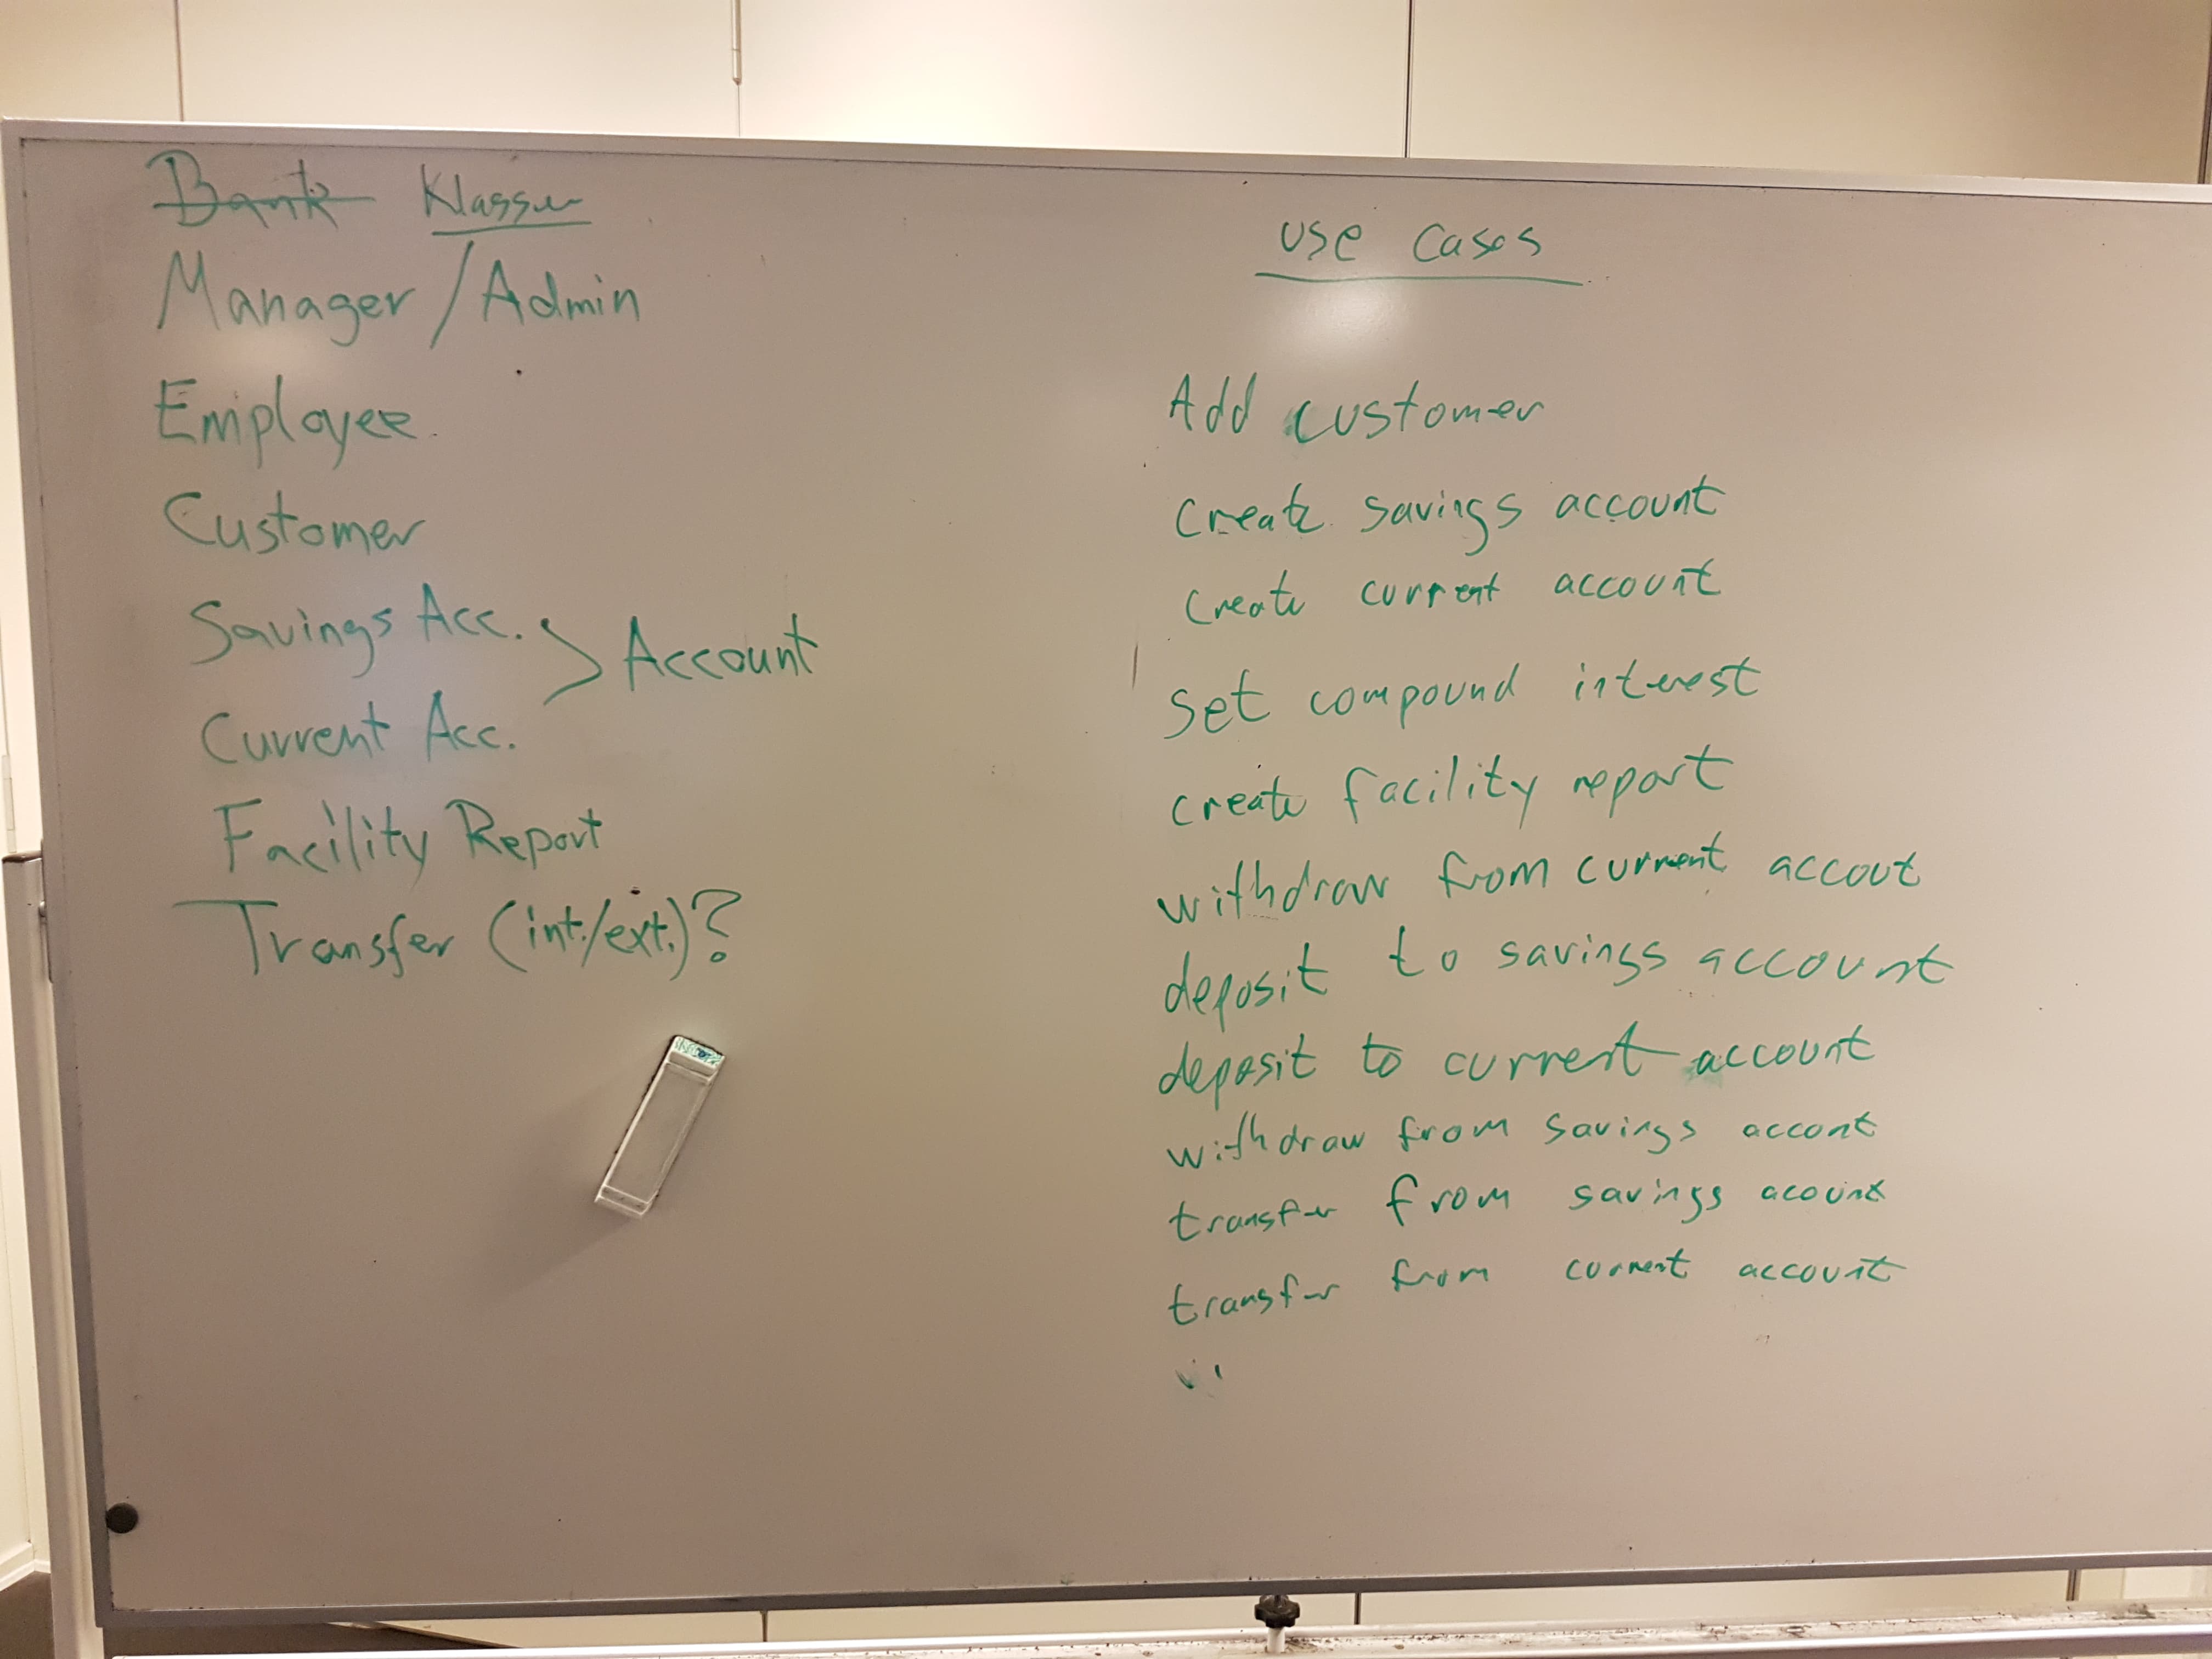 Bank Klasser
Manager/Admin
Employee
Customer
Savings Acc.
> Account
Current Acc.
Facility Report
Transfer (int./ext.)?
use cases
Add customer
create savings account
create current account
set compound interest
create facility report
withdraw from current accout
deposit to savings account
deposit to current account
withdraw from savings accont
transfer from savings acount
transfer from current account